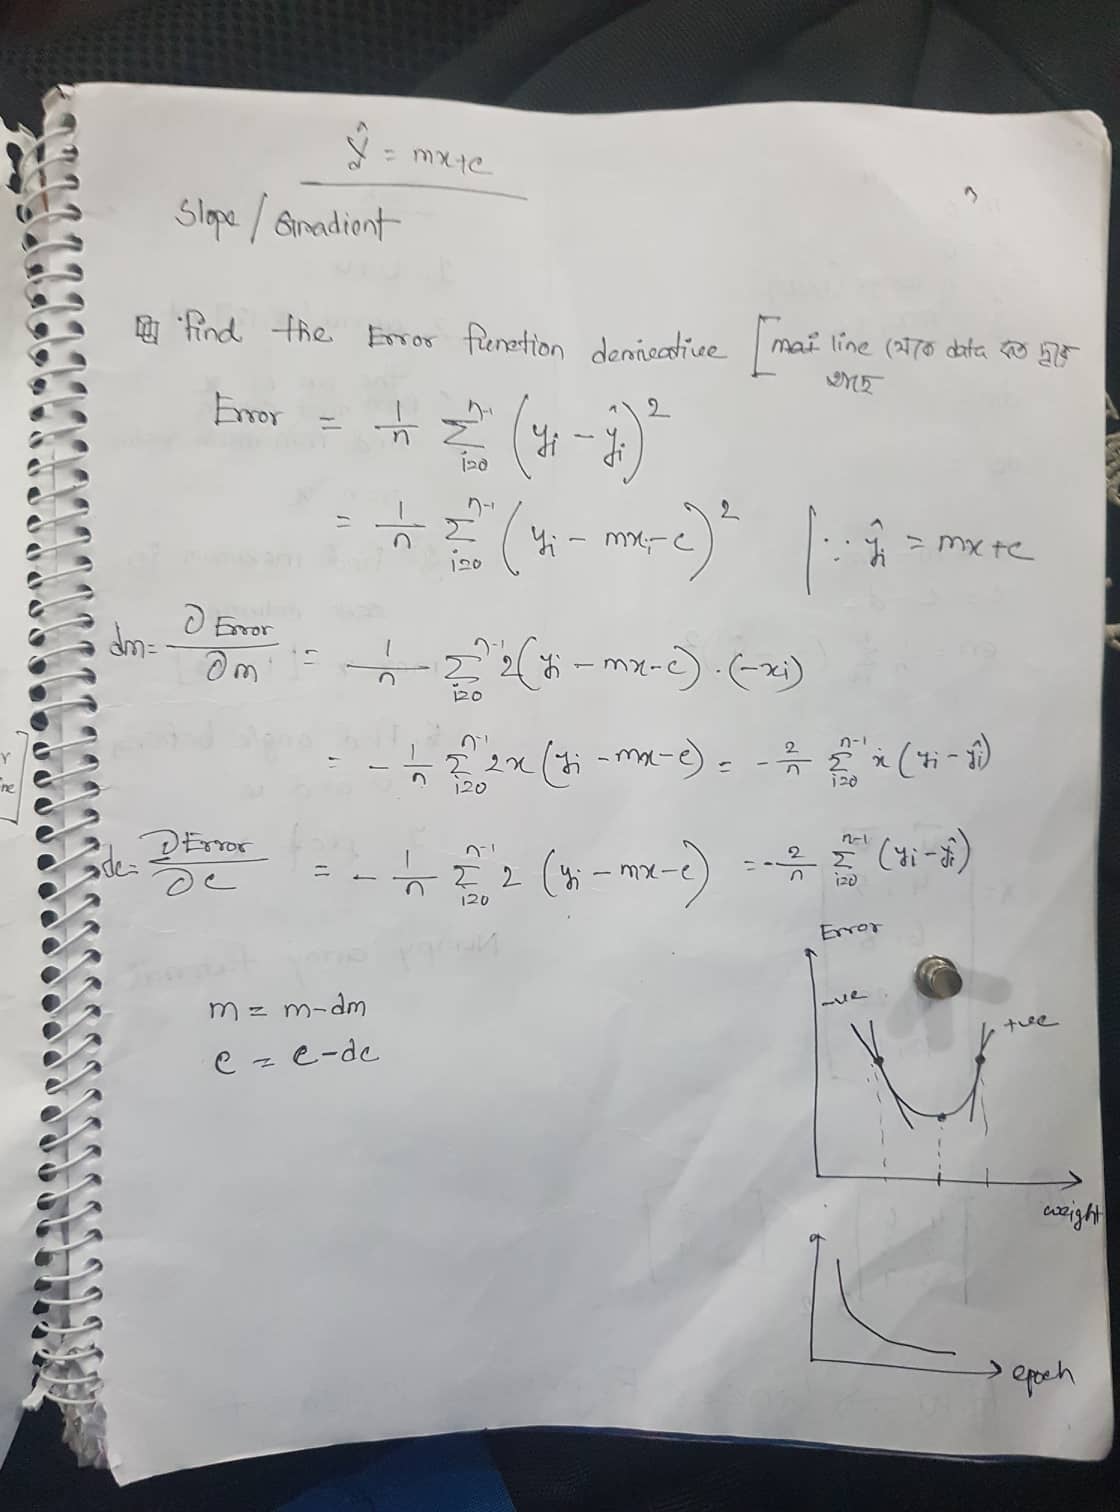 ŷ = mx+c
Slope / Gradient
find the Error function derivative [ line থেকে data কত দূরে
আছে
Error = 1/n Σ_{i=0}^{n-1} (yi - ŷi)²
= 1/n Σ_{i=0}^{n-1} (yi - mxi - c)² | ∵ ŷi = mx+c
dm = ∂Error/∂m = 1/n Σ_{i=0}^{n-1} 2(yi - mx - c) . (-xi)
= - 1/n Σ_{i=0}^{n-1} 2x (yi - mx - c) = - 2/n Σ_{i=0}^{n-1} x (yi - ŷi)
dc = ∂Error/∂c = - 1/n Σ_{i=0}^{n-1} 2 (yi - mx - c) = - 2/n Σ_{i=0}^{n-1} (yi - ŷi)
Error
m = m - dm
c = c - dc
-ve
+ve
weight
epoch